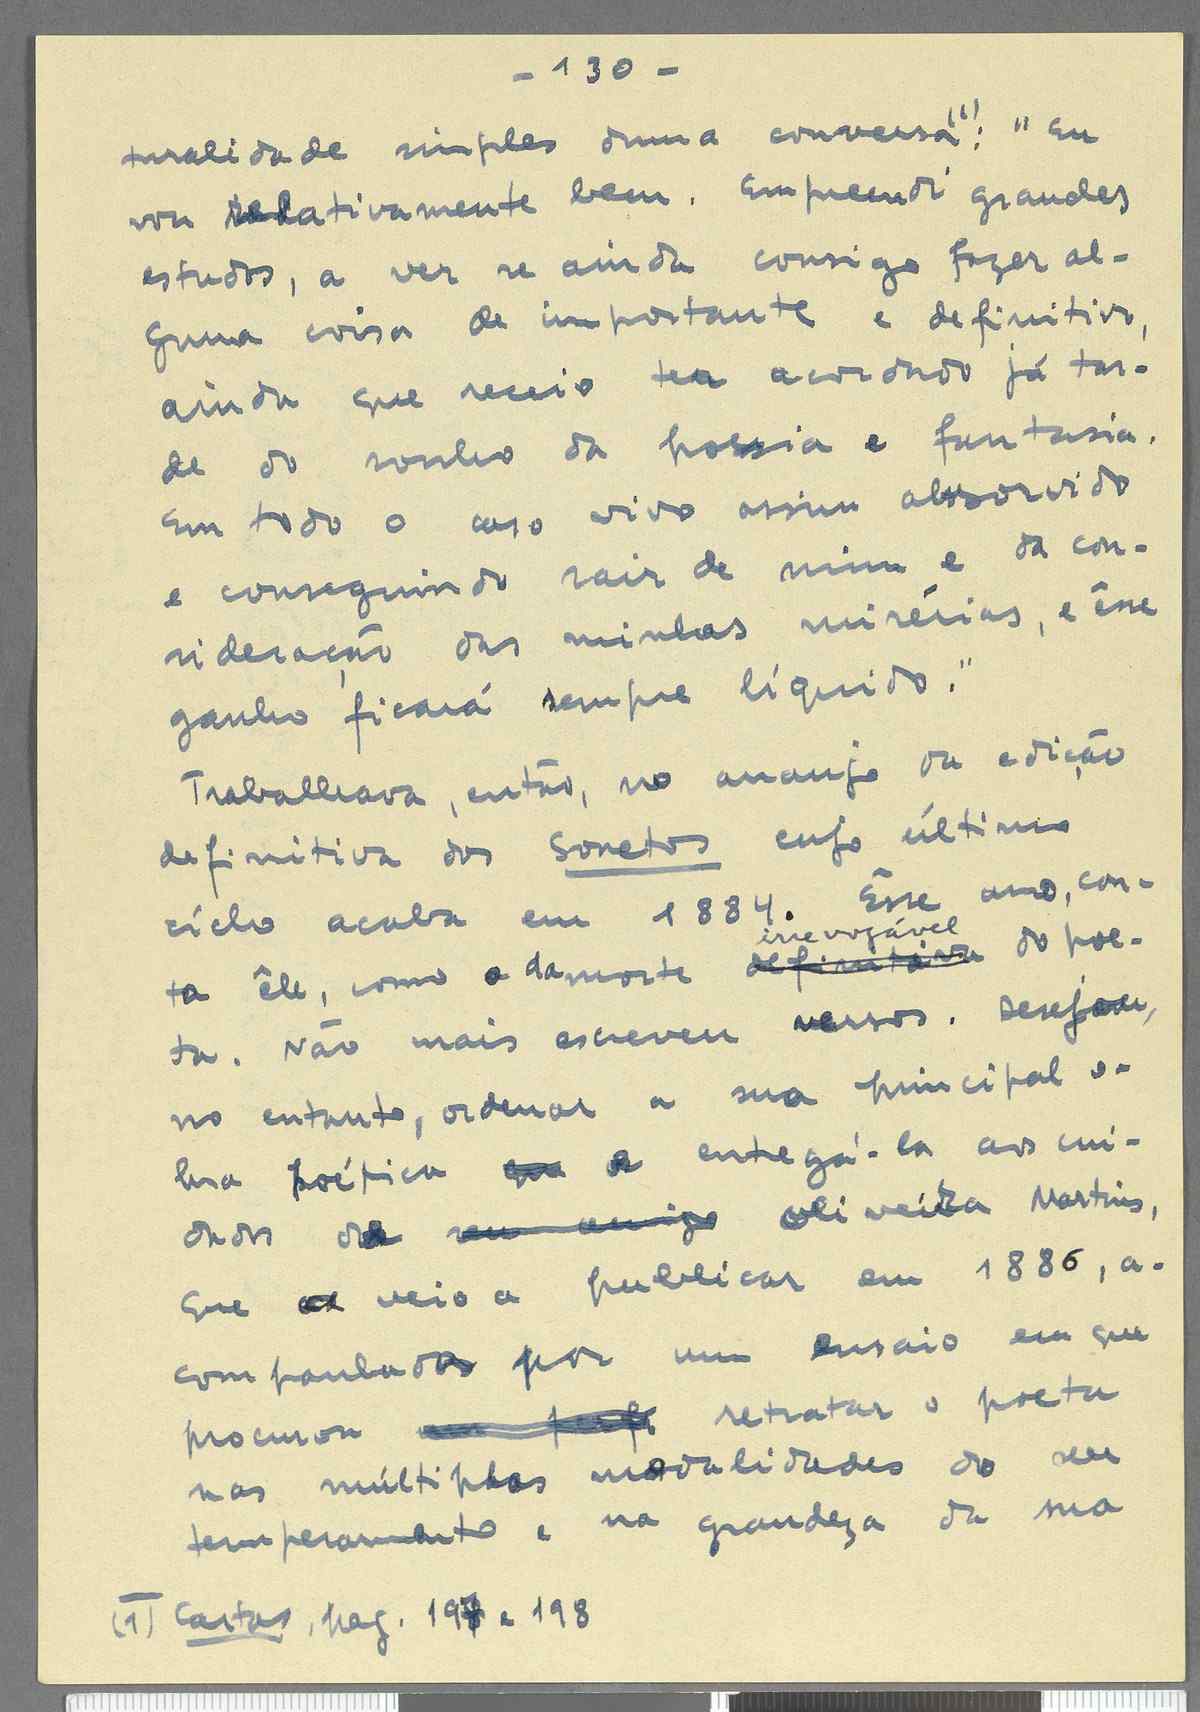 - 130 -
turalidade simples duma conversa(1): "Eu
vou relativamente bem. Empreendi grandes
estudos, a ver se ainda consigo fazer al-
guma coisa de importante e definitivo,
ainda que receio ter acordado já tar-
de do sonho da poesia e fantasia.
Em todo o caso vivo assim absorvido
e conseguindo sair de mim e da con-
sideração das minhas misérias, e êsse
ganho ficará sempre líquido."
Trabalhava, então, no arranjo da edição
definitiva dos Sonetos cujo último
ciclo acaba em 1884. Êsse ano, con-
irrevogável
ta êle, como o da morte definitiva do poe-
ta. Não mais escreveu versos. Desejou,
no entanto, ordenar a sua principal o-
bra poética e entregá-la aos cui-
dados de seu amigo Oliveira Martins,
que veio a publicar em 1886, a-
companhados por um ensaio em que
procurou retratar o poeta
nas múltiplas modalidades do seu
temperamento e na grandeza da sua
(1) Cartas, pag. 197 e 198